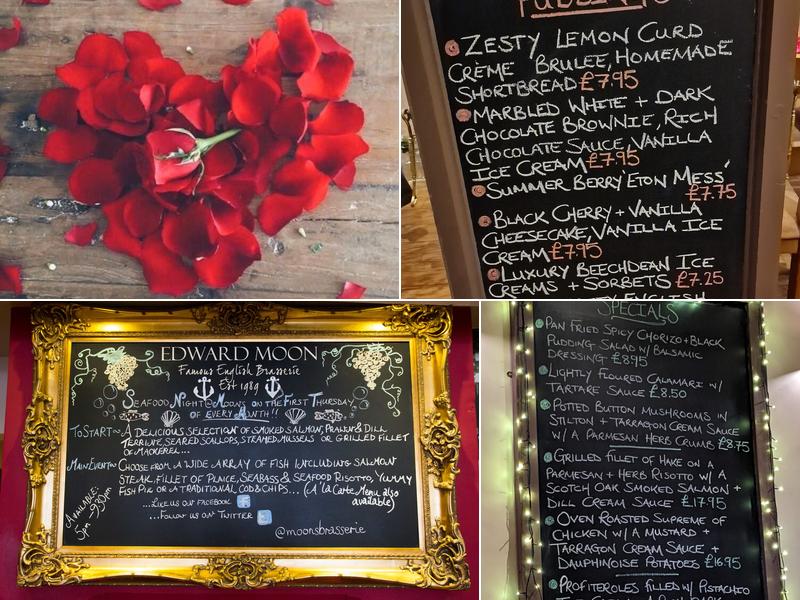 PUDDINGS
ZESTY LEMON CURD
CRÈME BRULEE, HOMEMADE
SHORTBREAD £7.95
MARBLED WHITE + DARK
CHOCOLATE BROWNIE, RICH
CHOCOLATE SAUCE, VANILLA
ICE CREAM £7.95
SUMMER BERRY 'ETON MESS'
£7.75
BLACK CHERRY + VANILLA
CHEESECAKE, VANILLA ICE
CREAM £7.95
LUXURY BEECHDEAN ICE
CREAMS + SORBETS £7.25
ENGLISH
EDWARD MOON
Famous English Brasserie
Est 1989
SEAFOOD NIGHT @ MOONS ON THE FIRST THURSDAY
OF EVERY MONTH!!
TO START~ A DELICIOUS SELECTION OF SMOKED SALMON, PRAWN & DILL
TERRINE, SEARED SCALLOPS, STEAMED MUSSELS OR GRILLED FILLET
OF MACKEREL...
MAIN EVENT~ CHOOSE FROM A WIDE ARRAY OF FISH INCLUDING SALMON
STEAK, FILLET OF PLAICE, SEABASS & SEAFOOD RISOTTO, YUMMY
FISH PIE OR A TRADITIONAL COD & CHIPS... (A la Carte Menu also
available)
AVAILABLE:
5pm - 9:30pm
...LIKE US ON FACEBOOK f
...FOLLOW US ON TWITTER
@moonsbrasserie
SPECIALS
PAN FRIED SPICY CHORIZO + BLACK
PUDDING SALAD W/ BALSAMIC
DRESSING £8.95
LIGHTLY FLOURED CALAMARI W/
TARTARE SAUCE £8.50
POTTED BUTTON MUSHROOMS IN
STILTON + TARRAGON CREAM SAUCE
W/ A PARMESAN HERB CRUMB £8.75
GRILLED FILLET OF HAKE ON A
PARMESAN + HERB RISOTTO W/ A
SCOTCH OAK SMOKED SALMON +
DILL CREAM SAUCE £17.95
OVEN ROASTED SUPREME OF
CHICKEN W/ A MUSTARD +
TARRAGON CREAM SAUCE +
DAUPHINOISE POTATOES £16.95
PROFITEROLES FILLED W/ PISTACHIO